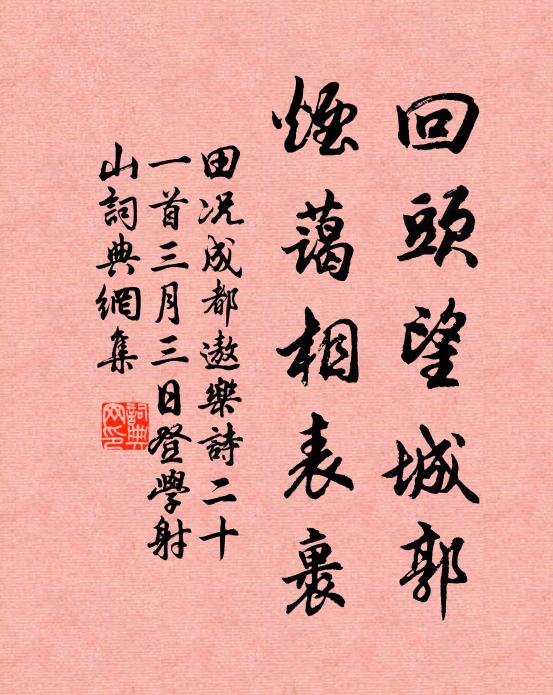 回頭望城郭
煙藹相表裏
田况成都遨樂詩二十
一首三月三日登學射
山詞典網集
詞典
网印